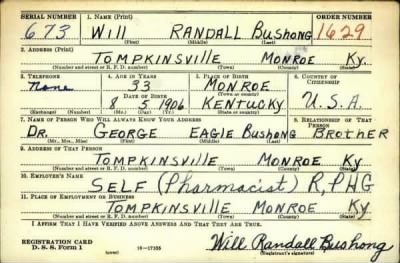 SERIAL NUMBER 1. NAME (Print) ORDER NUMBER
673 WILL RANDALL BUSHONG 1629
(First) (Middle) (Last)
2. ADDRESS (Print)
TOMPKINSVILLE MONROE Ky.
(Number and street or R. F. D. number) (Town) (County) (State)
3. TELEPHONE 4. AGE IN YEARS 5. PLACE OF BIRTH 6. COUNTRY OF CITIZENSHIP
None 33 MONROE
(Town or county)
DATE OF BIRTH
8 5 1906 KENTUCKY U.S.A.
(Exchange) (Number) (Mo.) (Day) (Yr.) (State or country)
7. NAME OF PERSON WHO WILL ALWAYS KNOW YOUR ADDRESS 8. RELATIONSHIP OF THAT PERSON
DR. GEORGE EAGLE BUSHONG BROTHER
(Mr., Mrs., Miss) (First) (Middle) (Last)
9. ADDRESS OF THAT PERSON
TOMPKINSVILLE MONROE Ky
(Number and street or R. F. D. number) (Town) (County) (State)
10. EMPLOYER'S NAME
SELF (Pharmacist) R, PHG
11. PLACE OF EMPLOYMENT OR BUSINESS
TOMPKINSVILLE MONROE Ky
(Number and street or R. F. D. number) (Town) (County) (State)
I AFFIRM THAT I HAVE VERIFIED ABOVE ANSWERS AND THAT THEY ARE TRUE.
REGISTRATION CARD
D. S. S. Form 1 16—17105 Will Randall Bushong
(over) (Registrant's signature)